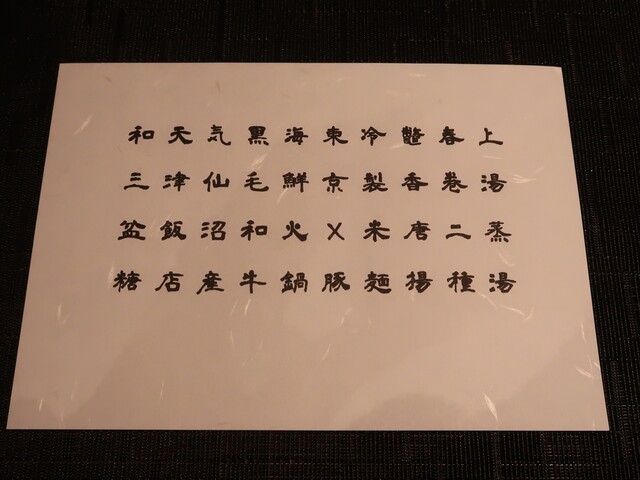 上湯蒸湯
春巻二種
鼈香唐揚
冷製米麺
東京X豚
海鮮火鍋
黒毛和牛
気仙沼産
天津飯店
和三盆糖